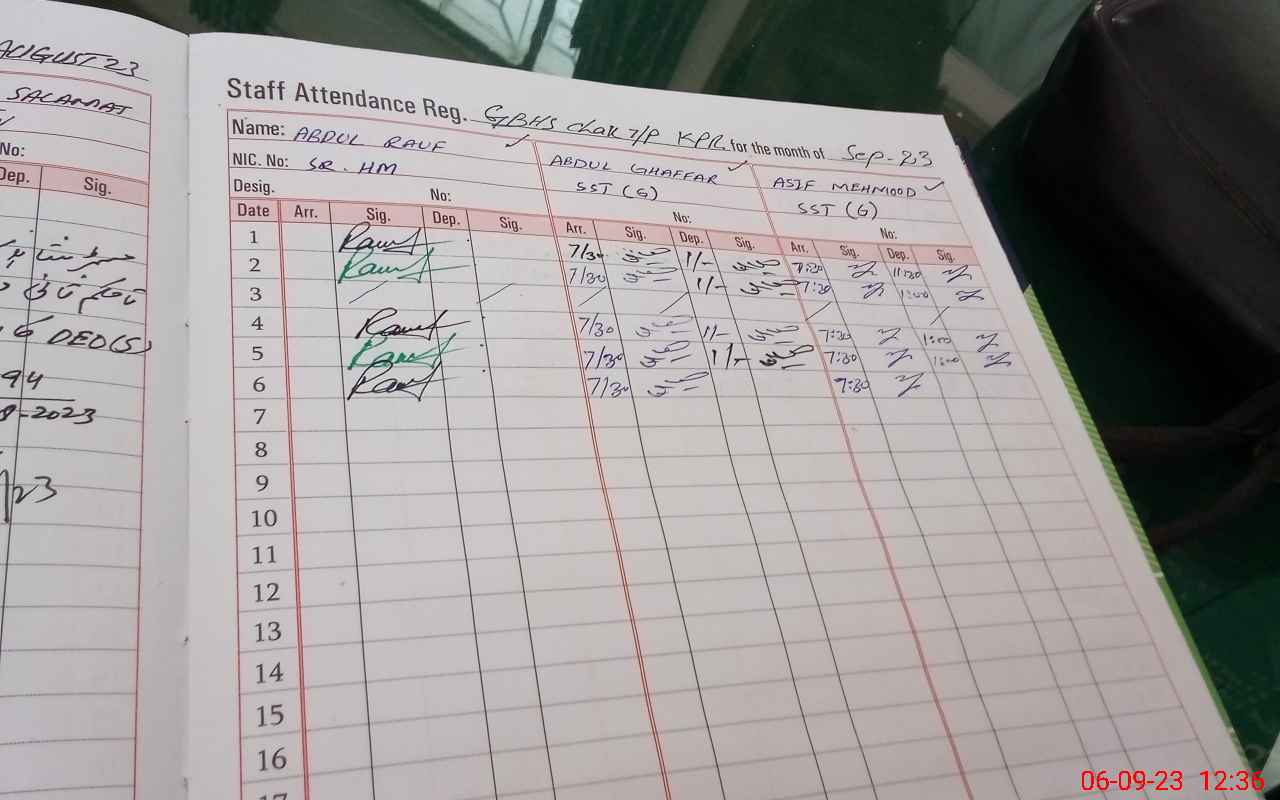 AUGUST 23
SALAMAT
No:
Dep. Sig.
6 DEO(S)
94
8-2023
23
Staff Attendance Reg. GBHS Chak 7/P KPR for the month of Sep-23
Name: ABDUL RAUF ABDUL GHAFFAR ASIF MEHMOOD
NIC. No: SR. HM SST (G) SST (G)
Desig. No: No: No:
Date Arr. Sig. Dep. Sig. Arr. Sig. Dep. Sig. Arr. Sig. Dep. Sig.
1 Rauf 7/30 1/- 7:30 11:30
2 Rauf 7/30 1/- 7:30 1:00
3
4 Rauf 7/30 1/- 7:30 1:00
5 Rauf 7/30 1/- 7:30 1:00
6 Rauf 7/30 7:30
7
8
9
10
11
12
13
14
15
16
17
06-09-23 12:36